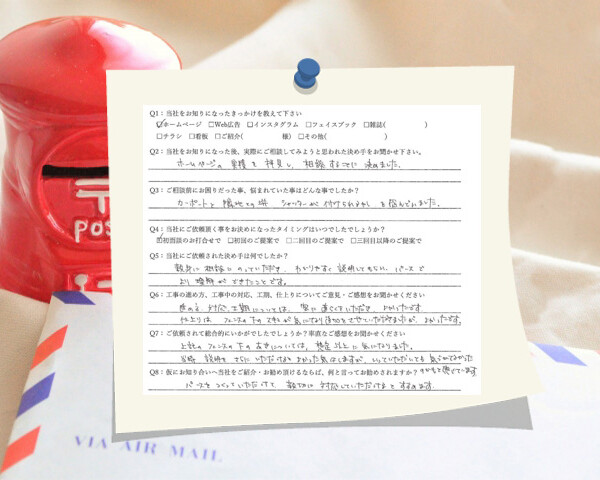 Q1：当社をお知りになったきっかけを教えて下さい
☑ホームページ □Web広告 □インスタグラム □フェイスブック □雑誌( )
□チラシ □看板 □ご紹介( 様) □その他( )
Q2：当社をお知りになった後、実際にご相談してみようと思われた決め手をお聞かせ下さい。
ホームページの実績を拝見し、相談することに決めました。
Q3：ご相談前にお困りだった事、悩まれていた事はどんな事でしたか？
カーポートと隣地との塀、シャッターが付けられるか、を悩んでいました。
Q4：当社にご依頼頂く事をお決めになったタイミングはいつでしたでしょうか？
☑初面談のお打合せで □初回のご提案で □二回目のご提案で □三回目以降のご提案で
Q5：当社にご依頼された決め手は何でしたか？
親身に相談にのっていただき、わかりやすく説明してもらい、パースで
より理解ができたことです。
Q6：工事の進め方、工事中の対応、工期、仕上りについてご意見・ご感想をお聞かせください
対応、工期については、早くていただき、よかったです
仕上りは、フェンスの下のすきが気になり よかったです。
Q7：ご依頼されて総合的にいかがでしたでしょうか？率直なご感想をお聞かせください
フェンスの下のあきについては、想定以上に気になりました。
説明を いただけるとよかった気はしますが、いっていただいても気づかなかった
かもと感じています
Q8：仮にお知り合いへ当社をご紹介・お勧め頂けるならば、何と言ってお勧めされますか？
パースをつくっていただけて、親切に対応していただけますとすすめます。
POS
VIA AIR MAIL